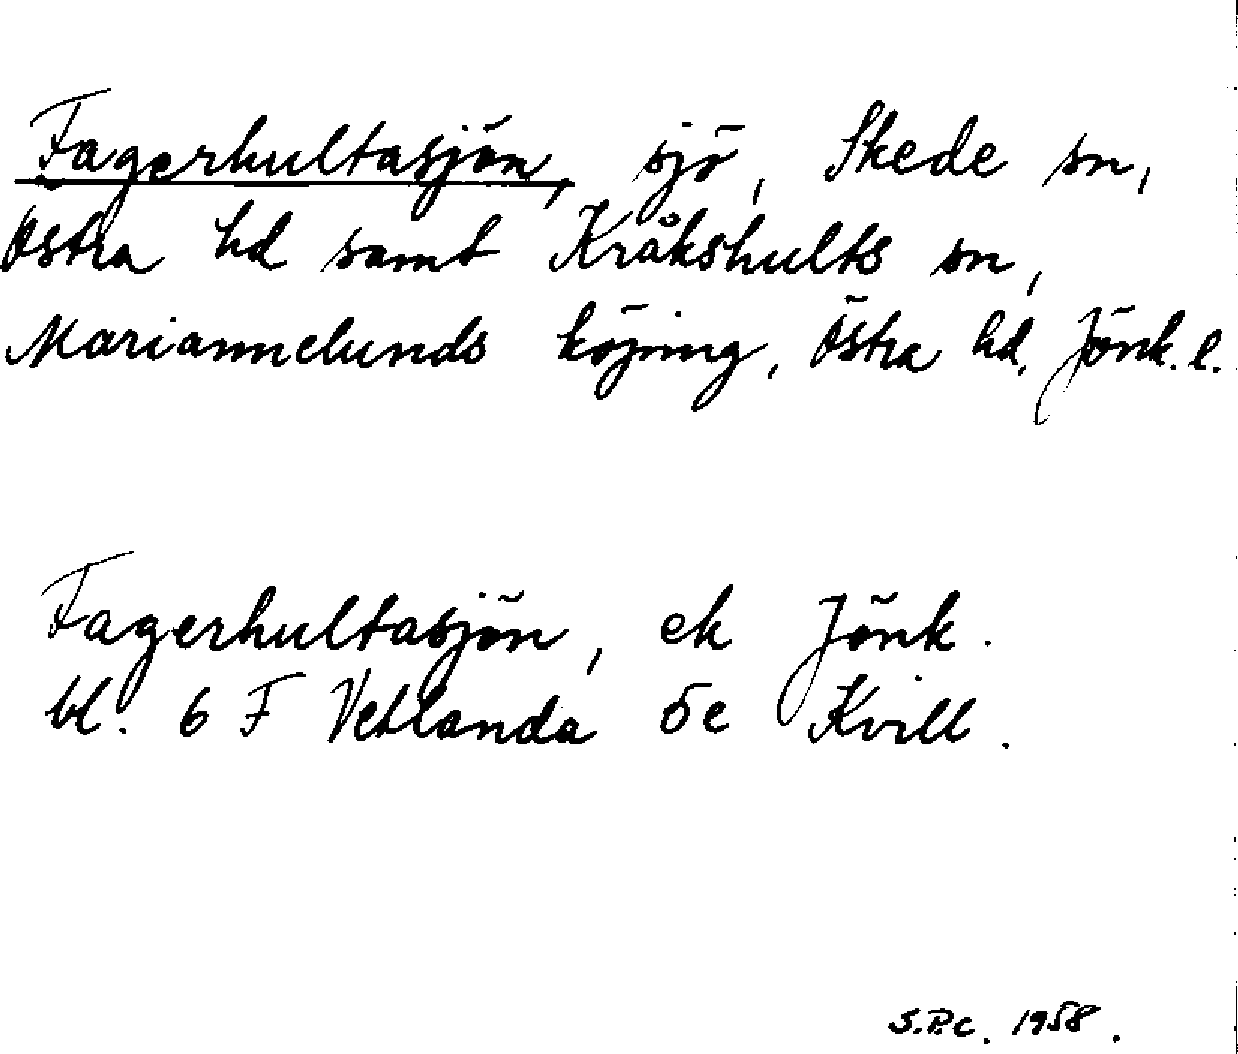 Fagerhultasjön, sjö, Skede sn,
Östra hd samt Kråkshults sn,
Mariannelunds köping, Östra hd, Jönk. l.
Fagerhultasjön, ek Jönk.
bl. 6 F Vetlanda 5e Kvill.
S.P.c. 1958.